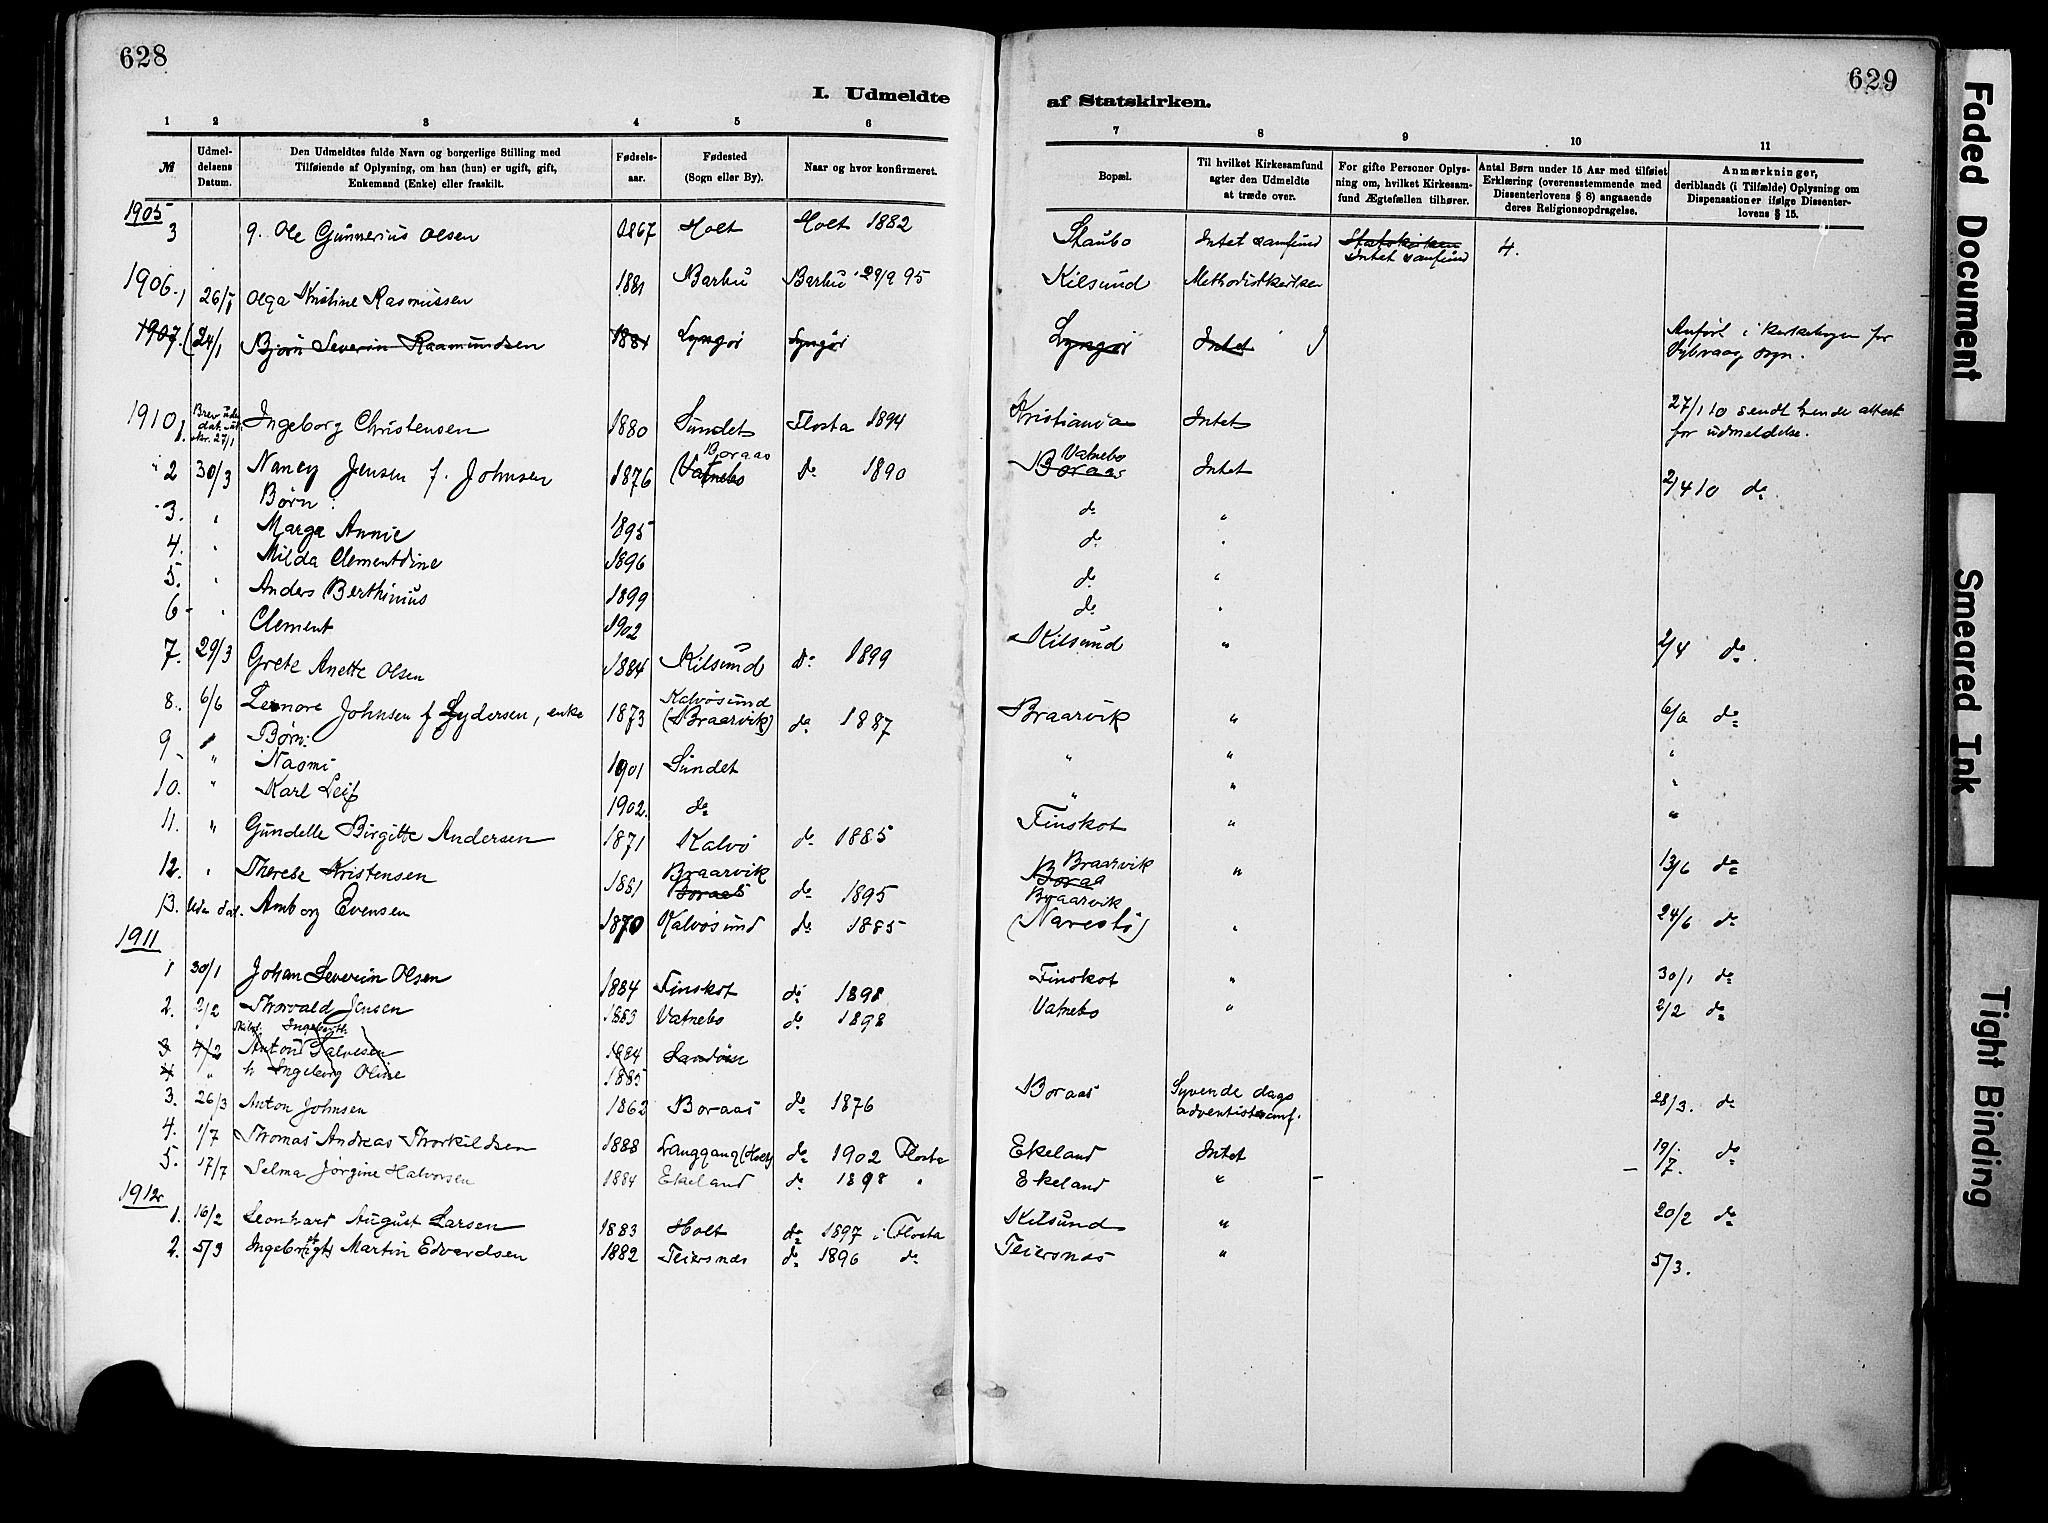 628
I. Udmeldte
1 2 3 4 5 6
№
Udmel-
delsens
Datum.
Den Udmeldtes fulde Navn og borgerlige Stilling med
Tilføiende af Oplysning, om han (hun) er ugift, gift,
Enkemand (Enke) eller fraskilt.
Fødsels-
aar.
Fødested
(Sogn eller By).
Naar og hvor konfirmeret.
1905
3 g. Ole Gunnerius Olsen 1867 Holt Holt 1882
1906. 1 Olga Kristine Rasmussen 1881 Barbu Barbu 29/9 95
1907. 24/1 Bjørn Severin Raamundsen 1881 Lyngør Lyngør
1910 1. Brev uden dat. 27/1 Ingeborg Christensen 1880 Sundet Flosta 1894
2 30/3 Nancy Jensen f. Johnsen 1876 Boraas (Vatnebo) do 1890
Børn:
3. " Marga Annie 1895
4. " Milda Clementdine 1896
5. " Anders Berthinius 1899
6 " Clement 1902
7. 29/3 Grete Anette Olsen 1884 Kilsund do 1899
8. 6/6 Leonore Johnsen f Lydersen, enke 1873 Kalvøsund (Braarvik) do 1887
Børn:
9 " Naomi 1901 Sundet
10. " Karl Leif 1902. do
11. " Gundelle Birgitte Andersen 1871 Kalvø do 1885
12. " Therese Kristensen 1881 Braarvik Boraas do 1895
13. Uden dat. Amborg Evensen 1870 Kalvøsund do 1885
1911
1 30/1 Johan Severin Olsen 1884 Finskot do 1898
2. 2/2 Thorvald Jensen 1883 Vatnebo do 1898
3 4/2 Anton Salvesen 1884 Sandøen
4 " h Ingeborg Oline 1885
3. 26/3 Anton Johnsen 1862 Boraas do 1876
4. 1/7 Thomas Andreas Thorkildsen 1888 Langgang (Holt) do 1902 Flosta
5. 17/7 Selma Jørgine Halvorsen 1884 Ekeland do 1898 "
1912
1. 16/2 Leonhard August Larsen 1883 Holt do 1897 i Flosta
2. 5/3 Ingebrigt Martin Edvardsen 1882 Teiersnes do 1896 do
629
af Statskirken.
7 8 9 10 11
Bopæl.
Til hvilket Kirkesamfund
agter den Udmeldte
at træde over.
For gifte Personer Oplys-
ning om, hvilket Kirkesam-
fund Ægtefællen tilhører.
Antal Børn under 15 Aar med tilføiet
Erklæring (overensstemmende med
Dissenterlovens § 8) angaaende
deres Religionsopdragelse.
Anmærkninger,
deriblandt (i Tilfælde) Oplysning om
Dispensationer ifølge Dissenter-
lovens § 15.
Staubo Intet samfund Statskirken Intet samfund 4.
Kilsund Methodistkirken
Lyngør Intet Anført i kirkebogen for
Dybvaag sogn.
Kristiania Intet 27/1 10 sendt hende attest
for udmeldelse.
Vatnebo Boraas Intet 2/4 10 do
do "
do "
do "
do "
Kilsund " 2/4 do.
Braarvik " 6/6 do
" " "
" " "
Finskot " "
Braarvik Boraa " 13/6 do
Braarvik (Narestø) " 24/6 do
Finskot " 30/1 do
Vatnebo " 2/2 do
Boraas Syvende dags
adventistsamf. 28/3. do
Ekeland Intet 19/7. do
Ekeland " –
Kilsund " 20/2 do
Teiersnes " 5/3.
Faded Document
Smeared Ink
Tight Binding